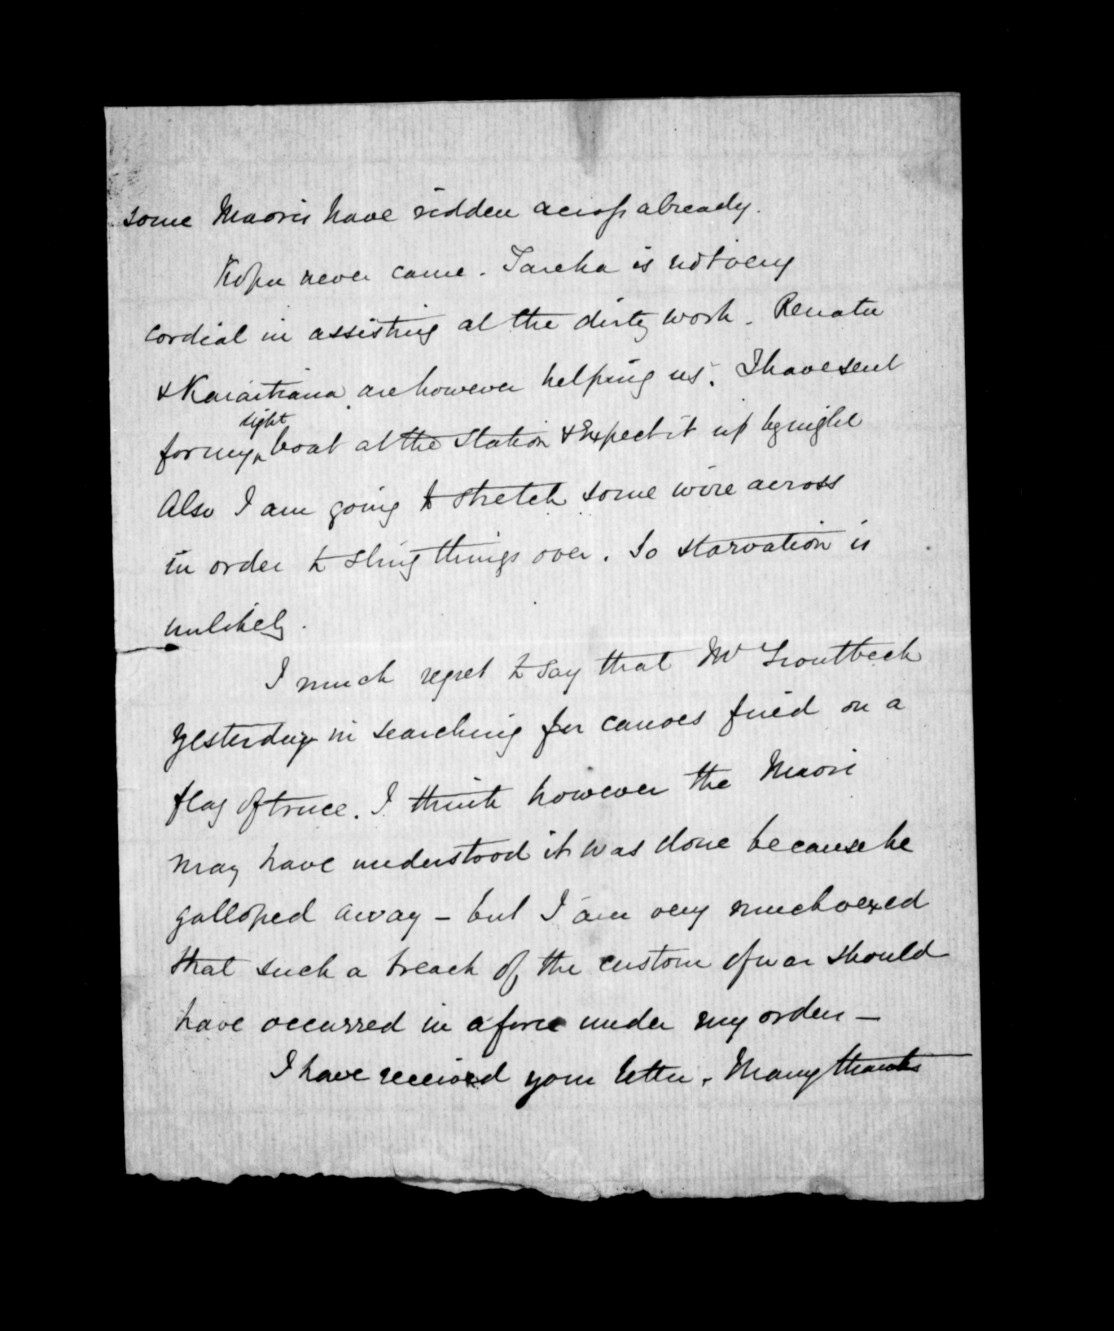 some Maoris have ridden across already.
Kopu never came. Tareha is not very
cordial in assisting at the dirty work. Renata
& Karaitiana are however helping us. I have sent
for my light boat at the station & expect it up by night
Also I am going to stretch some wire across
in order to sling things over. So starvation is
unlikely.
I much regret to say that Mr Troutbeck
yesterday in searching for canoes fired on a
flag of truce. I think however the Maori
may have understood it was done because he
galloped away - but I am very much vexed
that such a breach of the custom of war should
have occurred in a force under my orders -
I have received your letter. Many thanks